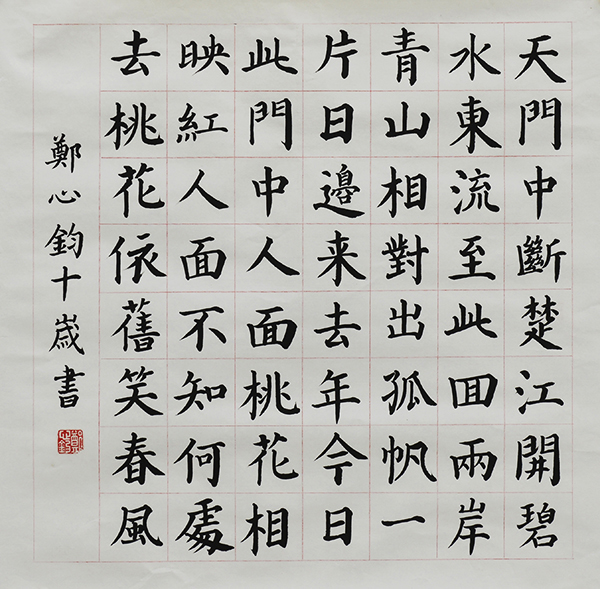 天門中斷楚江開碧
水東流至此回兩岸
青山相對出孤帆一
片日邊来去年今日
此門中人面桃花相
映紅人面不知何處
去桃花依舊笑春風
鄭心鈞十歲書